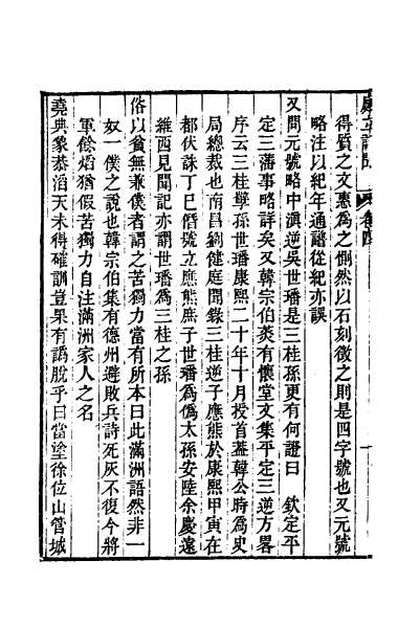 得質之文憲為之惻然以石刻徵之則是四字號也又元號
略注以紀年通譜從紀亦誤
又問元號略中滇逆吳世璠是三桂孫更有何證曰　欽定平
定三藩事略詳矣又韓宗伯菼有懷堂文集平定三逆方畧
序云三桂孽孫世璠康熙二十年十月授首蓋韓公時為史
局總裁也南昌劉健庭聞錄三桂逆子應熊於康熙甲寅在
都伏誅丁巳僭號立應熊庶子世璠為偽太孫安陸余慶遠
維西見聞記亦謂世璠為三桂之孫
俗以貧無兼僕者謂之苦獨力當有所本曰此滿洲語然非一
奴一僕之說也韓宗伯集有德州避敗兵詩死灰不復今將
軍餘焰猶假苦獨力自注滿洲家人之名
堯典象恭滔天未得確訓豈果有譌脫乎曰當塗徐位山管城